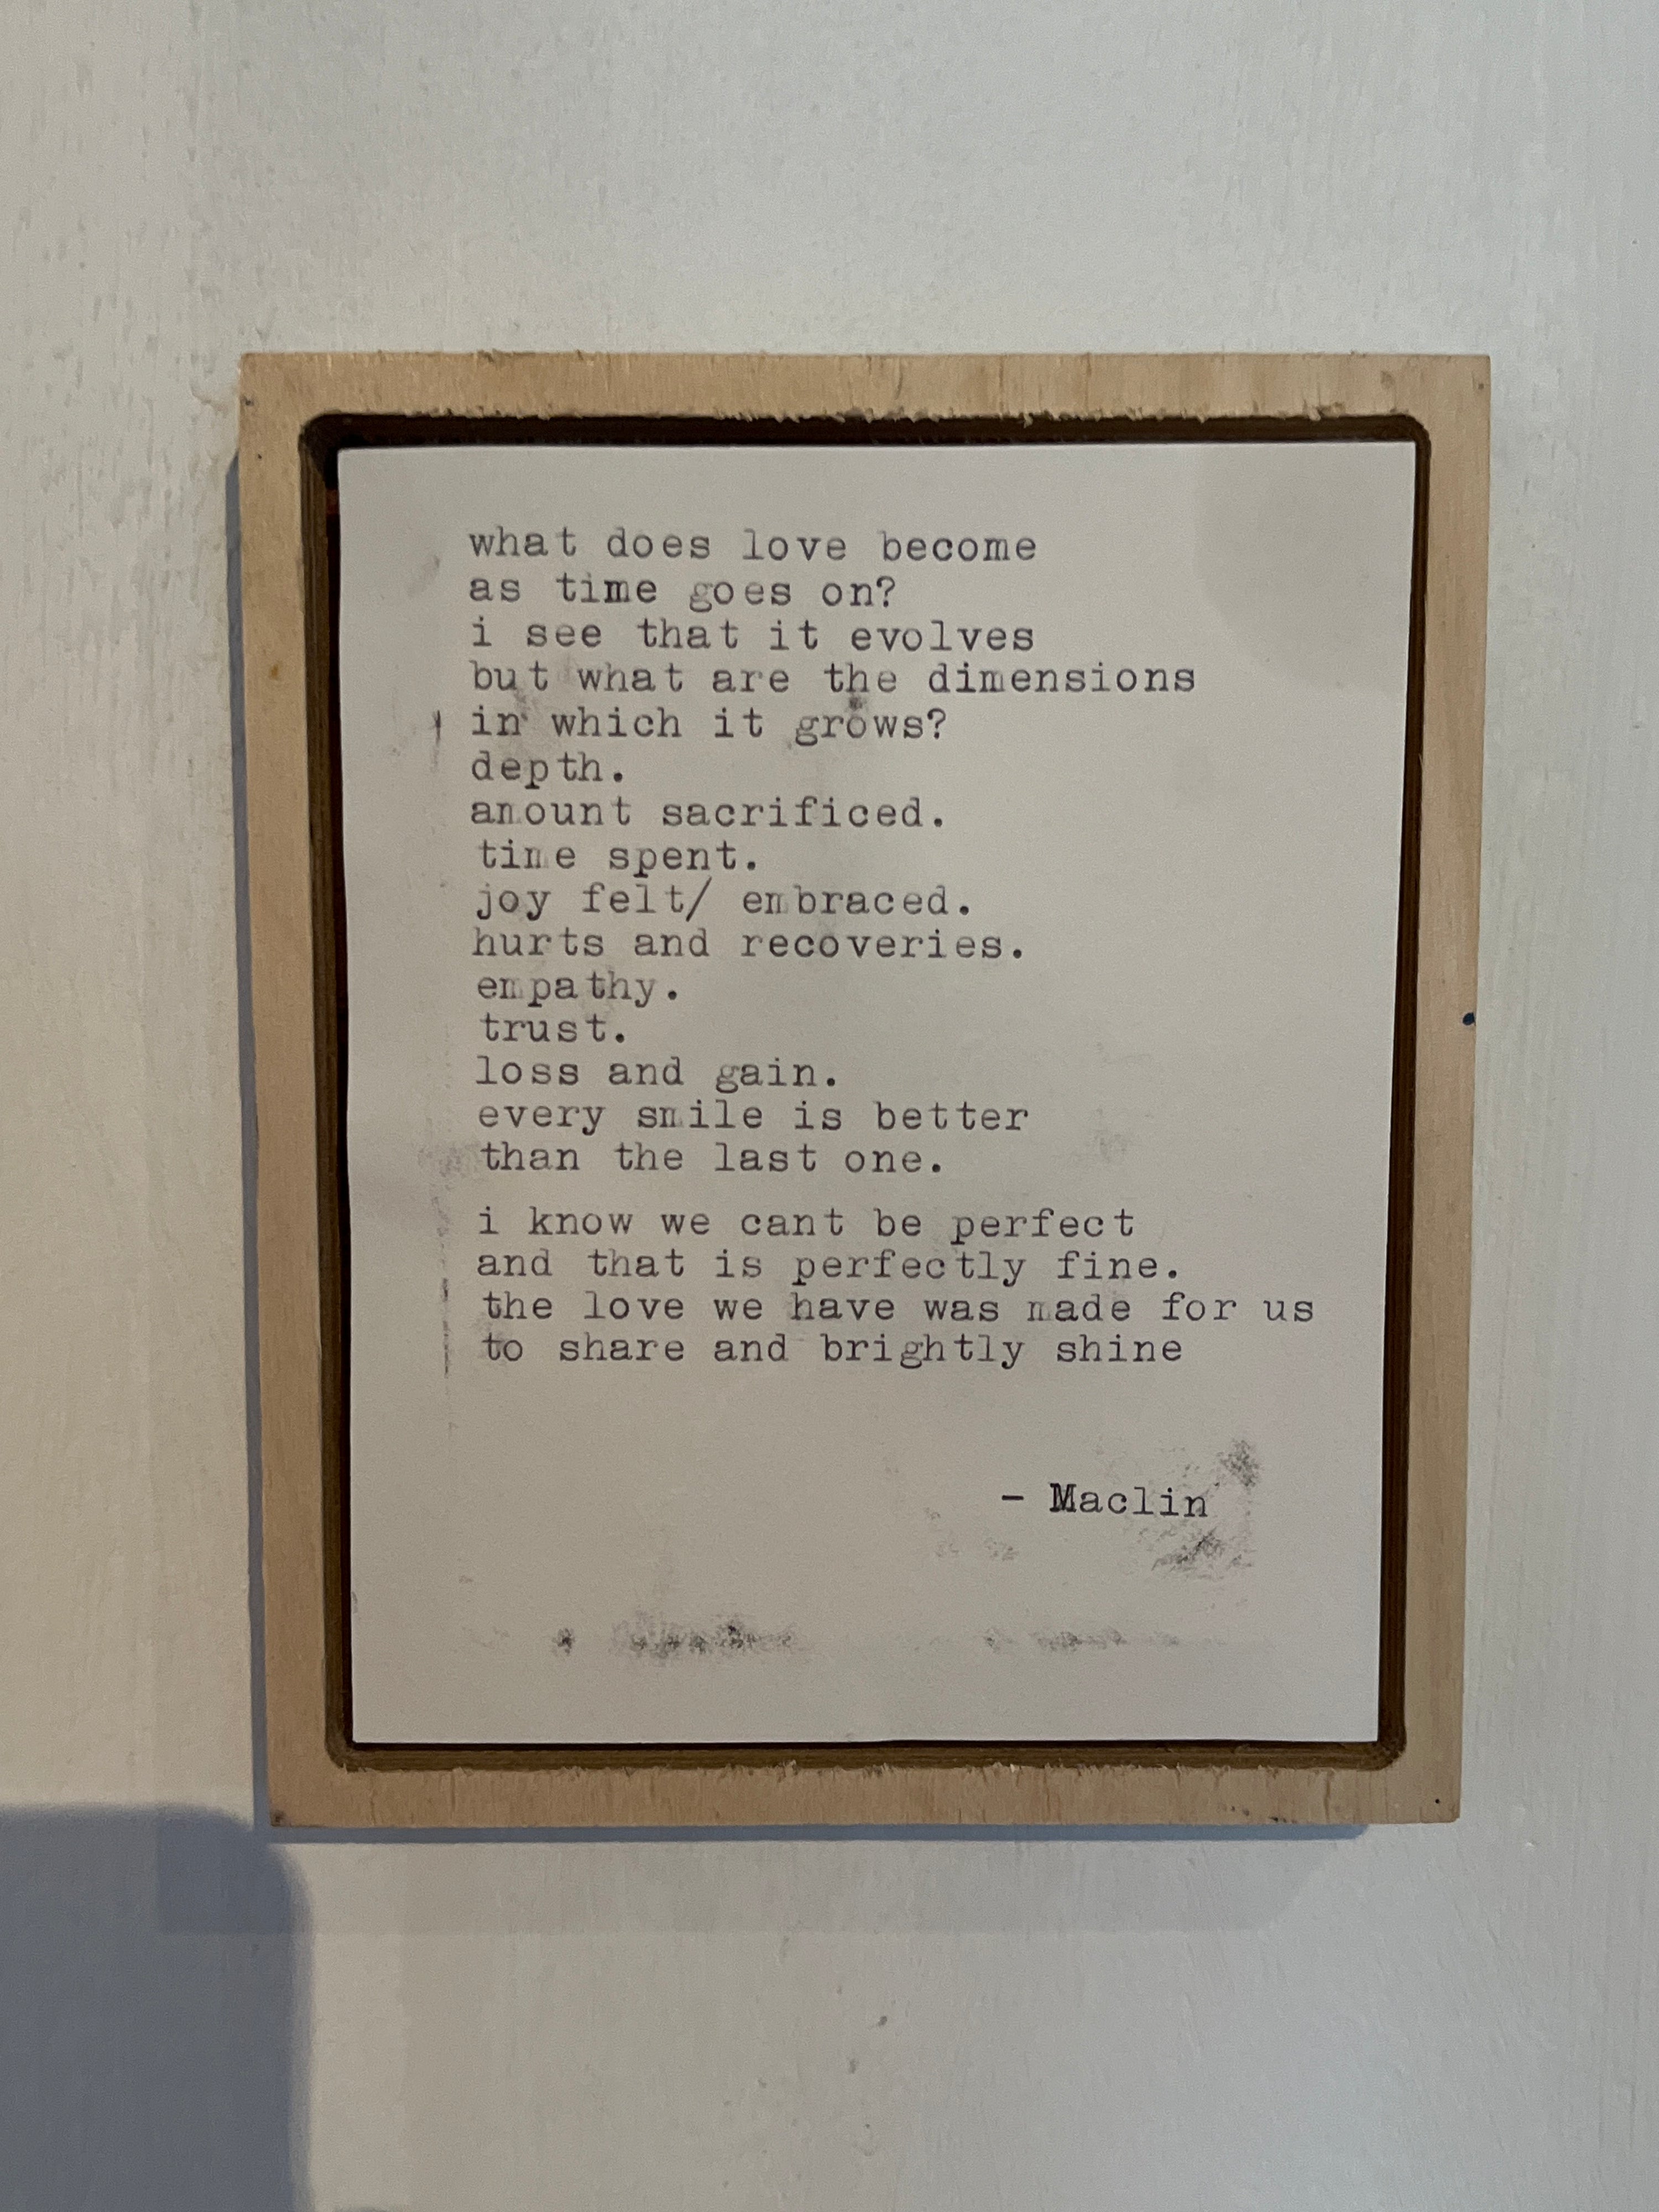 what does love become
as time goes on?
i see that it evolves
but what are the dimensions
in which it grows?
depth.
amount sacrificed.
time spent.
joy felt/ embraced.
hurts and recoveries.
empathy.
trust.
loss and gain.
every smile is better
than the last one.
i know we cant be perfect
and that is perfectly fine.
the love we have was made for us
to share and brightly shine
- Maclin